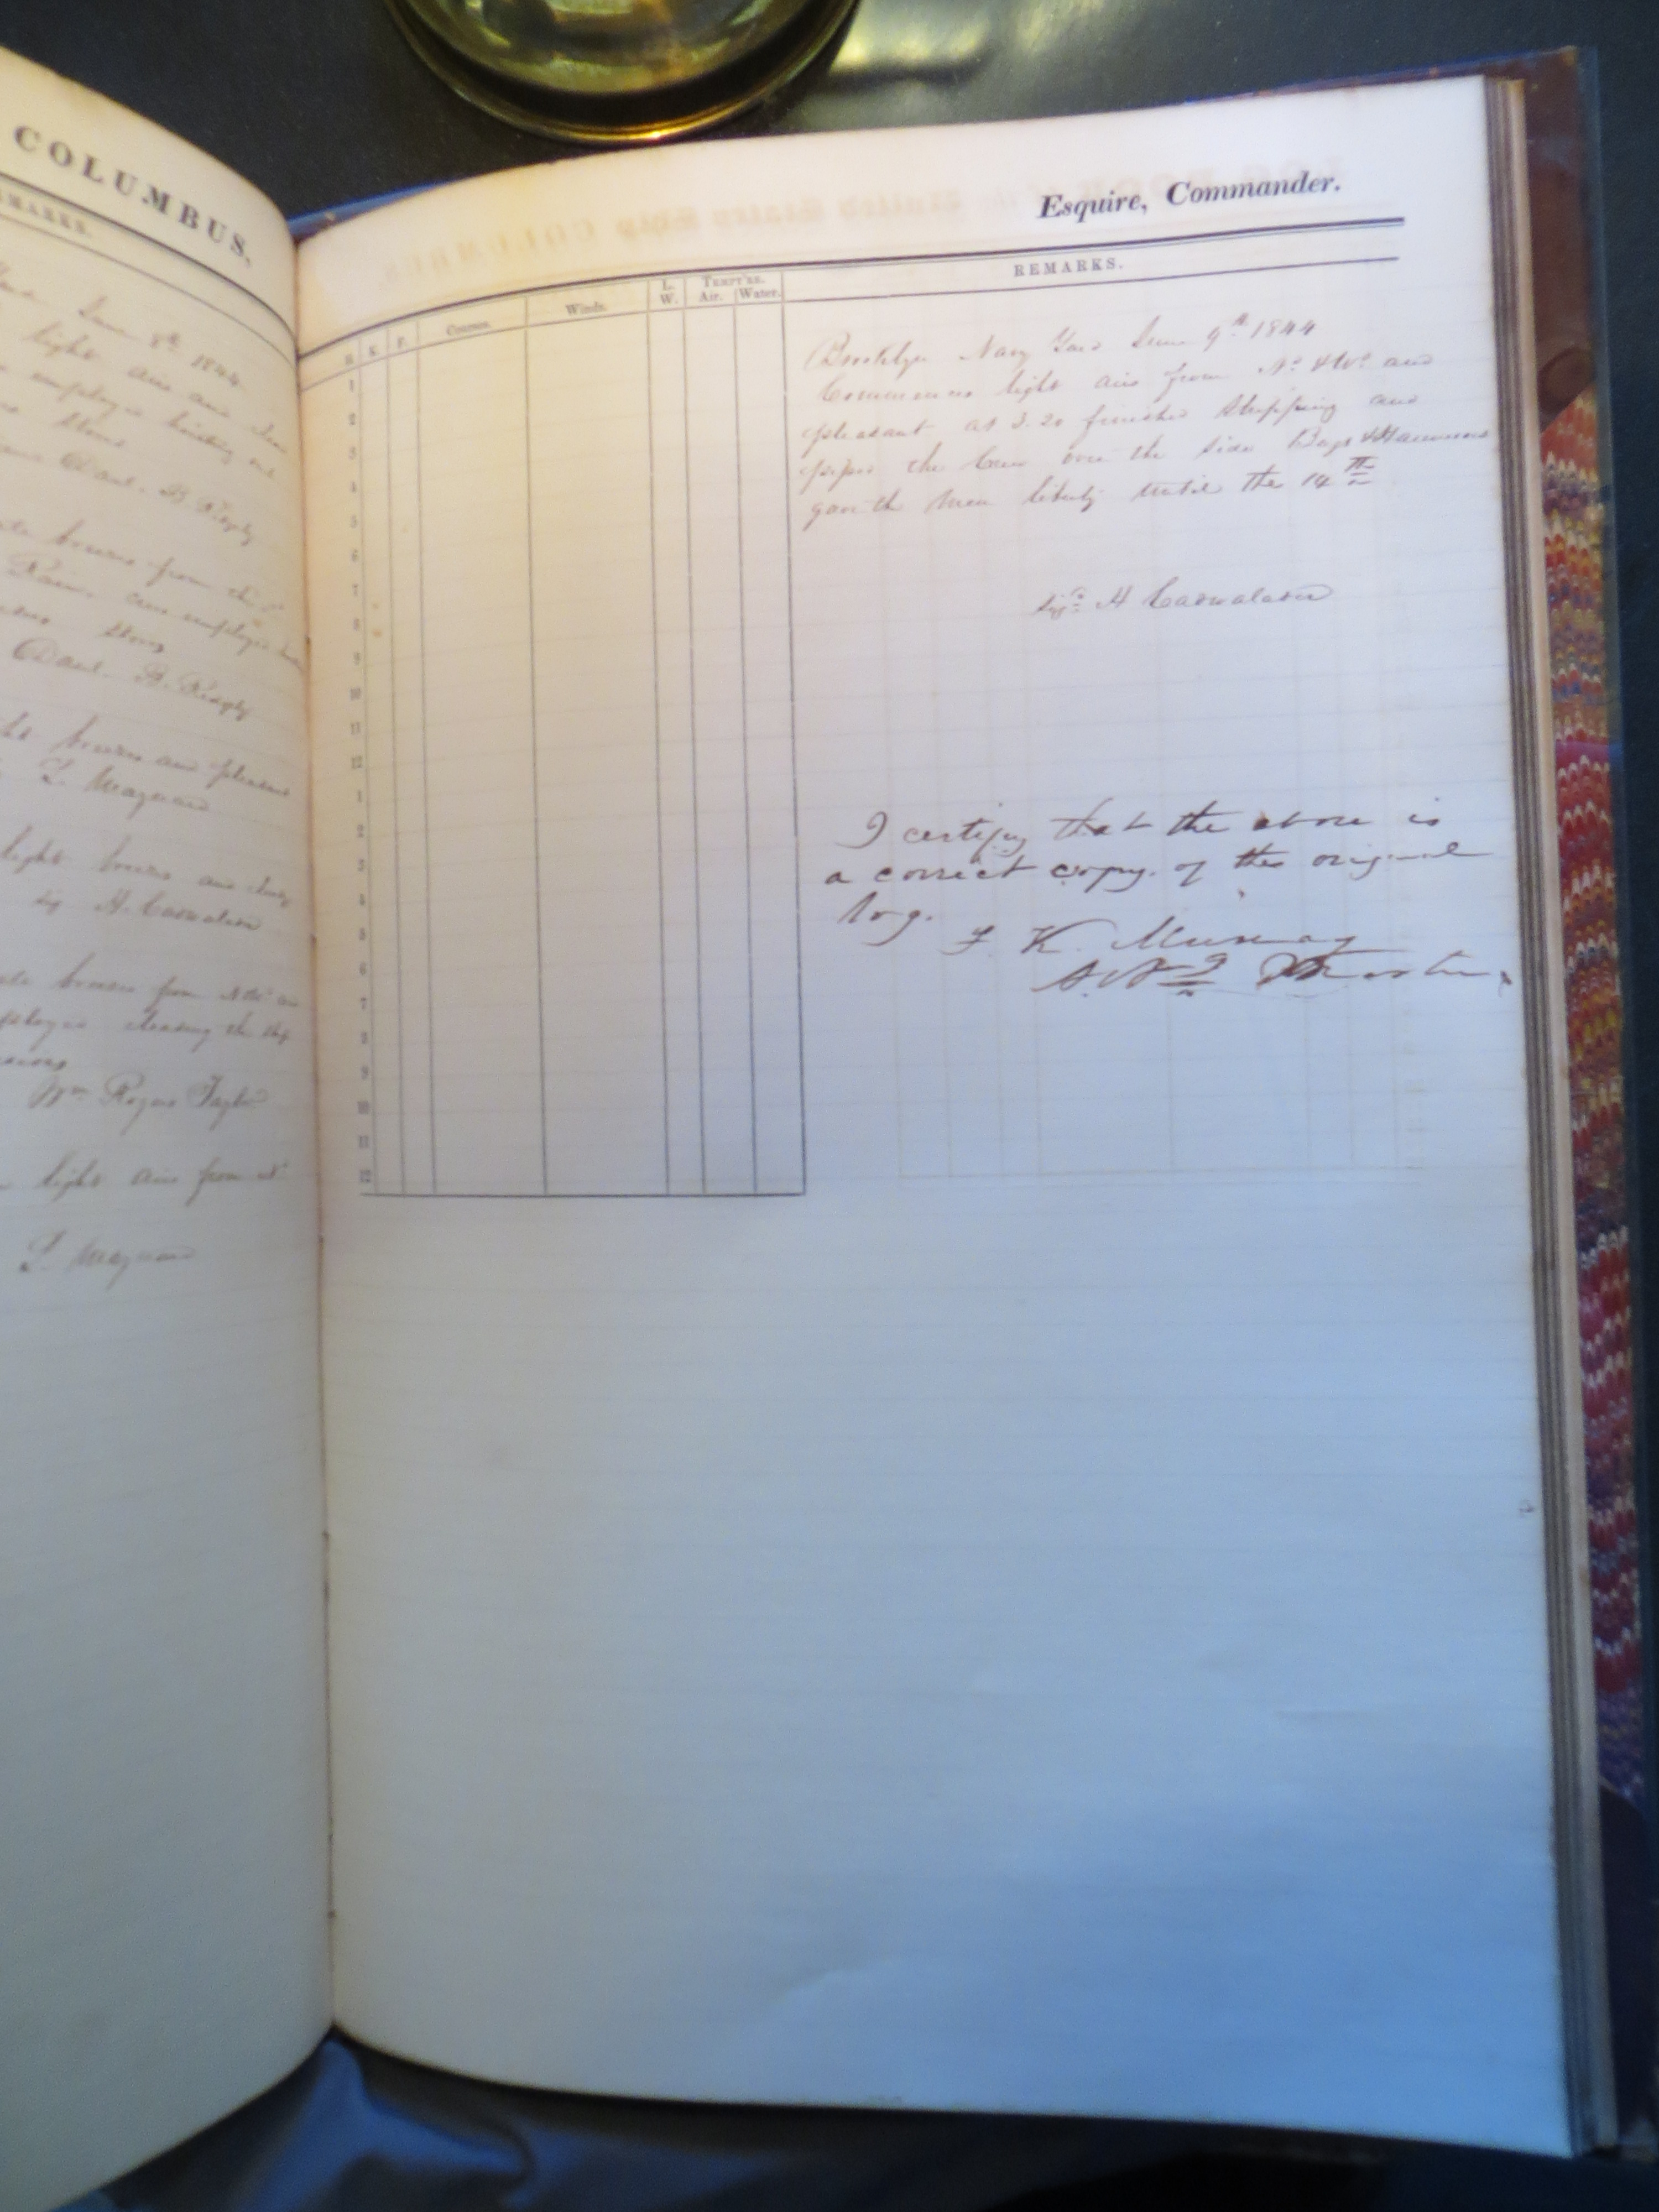 COLUMBUS,
REMARKS.
June 8th 1844
light airs and
employed hoisting out
Stores
Danl. B. Ridgely
breezes from the
Rain. crew employed
Stores
Danl. B. Ridgely
breezes and pleasant
L. Maynard
light breezes and
H. Cadwalader
breezes from NW and
employed cleaning the ship
Wm Rogers Taylor
light airs from Nd
L. Maynard
Esquire, Commander.
H. K. F. Courses. Winds. L. W. TEMPT'RE. Air. Water. REMARKS.
1
2
3
4
5
6
7
8
9
10
11
12
1
2
3
4
5
6
7
8
9
10
11
12
Brooklyn Navy Yard June 9th 1844
Commences light airs from Nd & Wd and
pleasant at 3.20 finished stripping and
piped the Crew over the side Bags & Hammocks
gave the men liberty until the 14th
Sigd H Cadwalader
I certify that the above is
a correct copy of the original
log.
F K. Murray